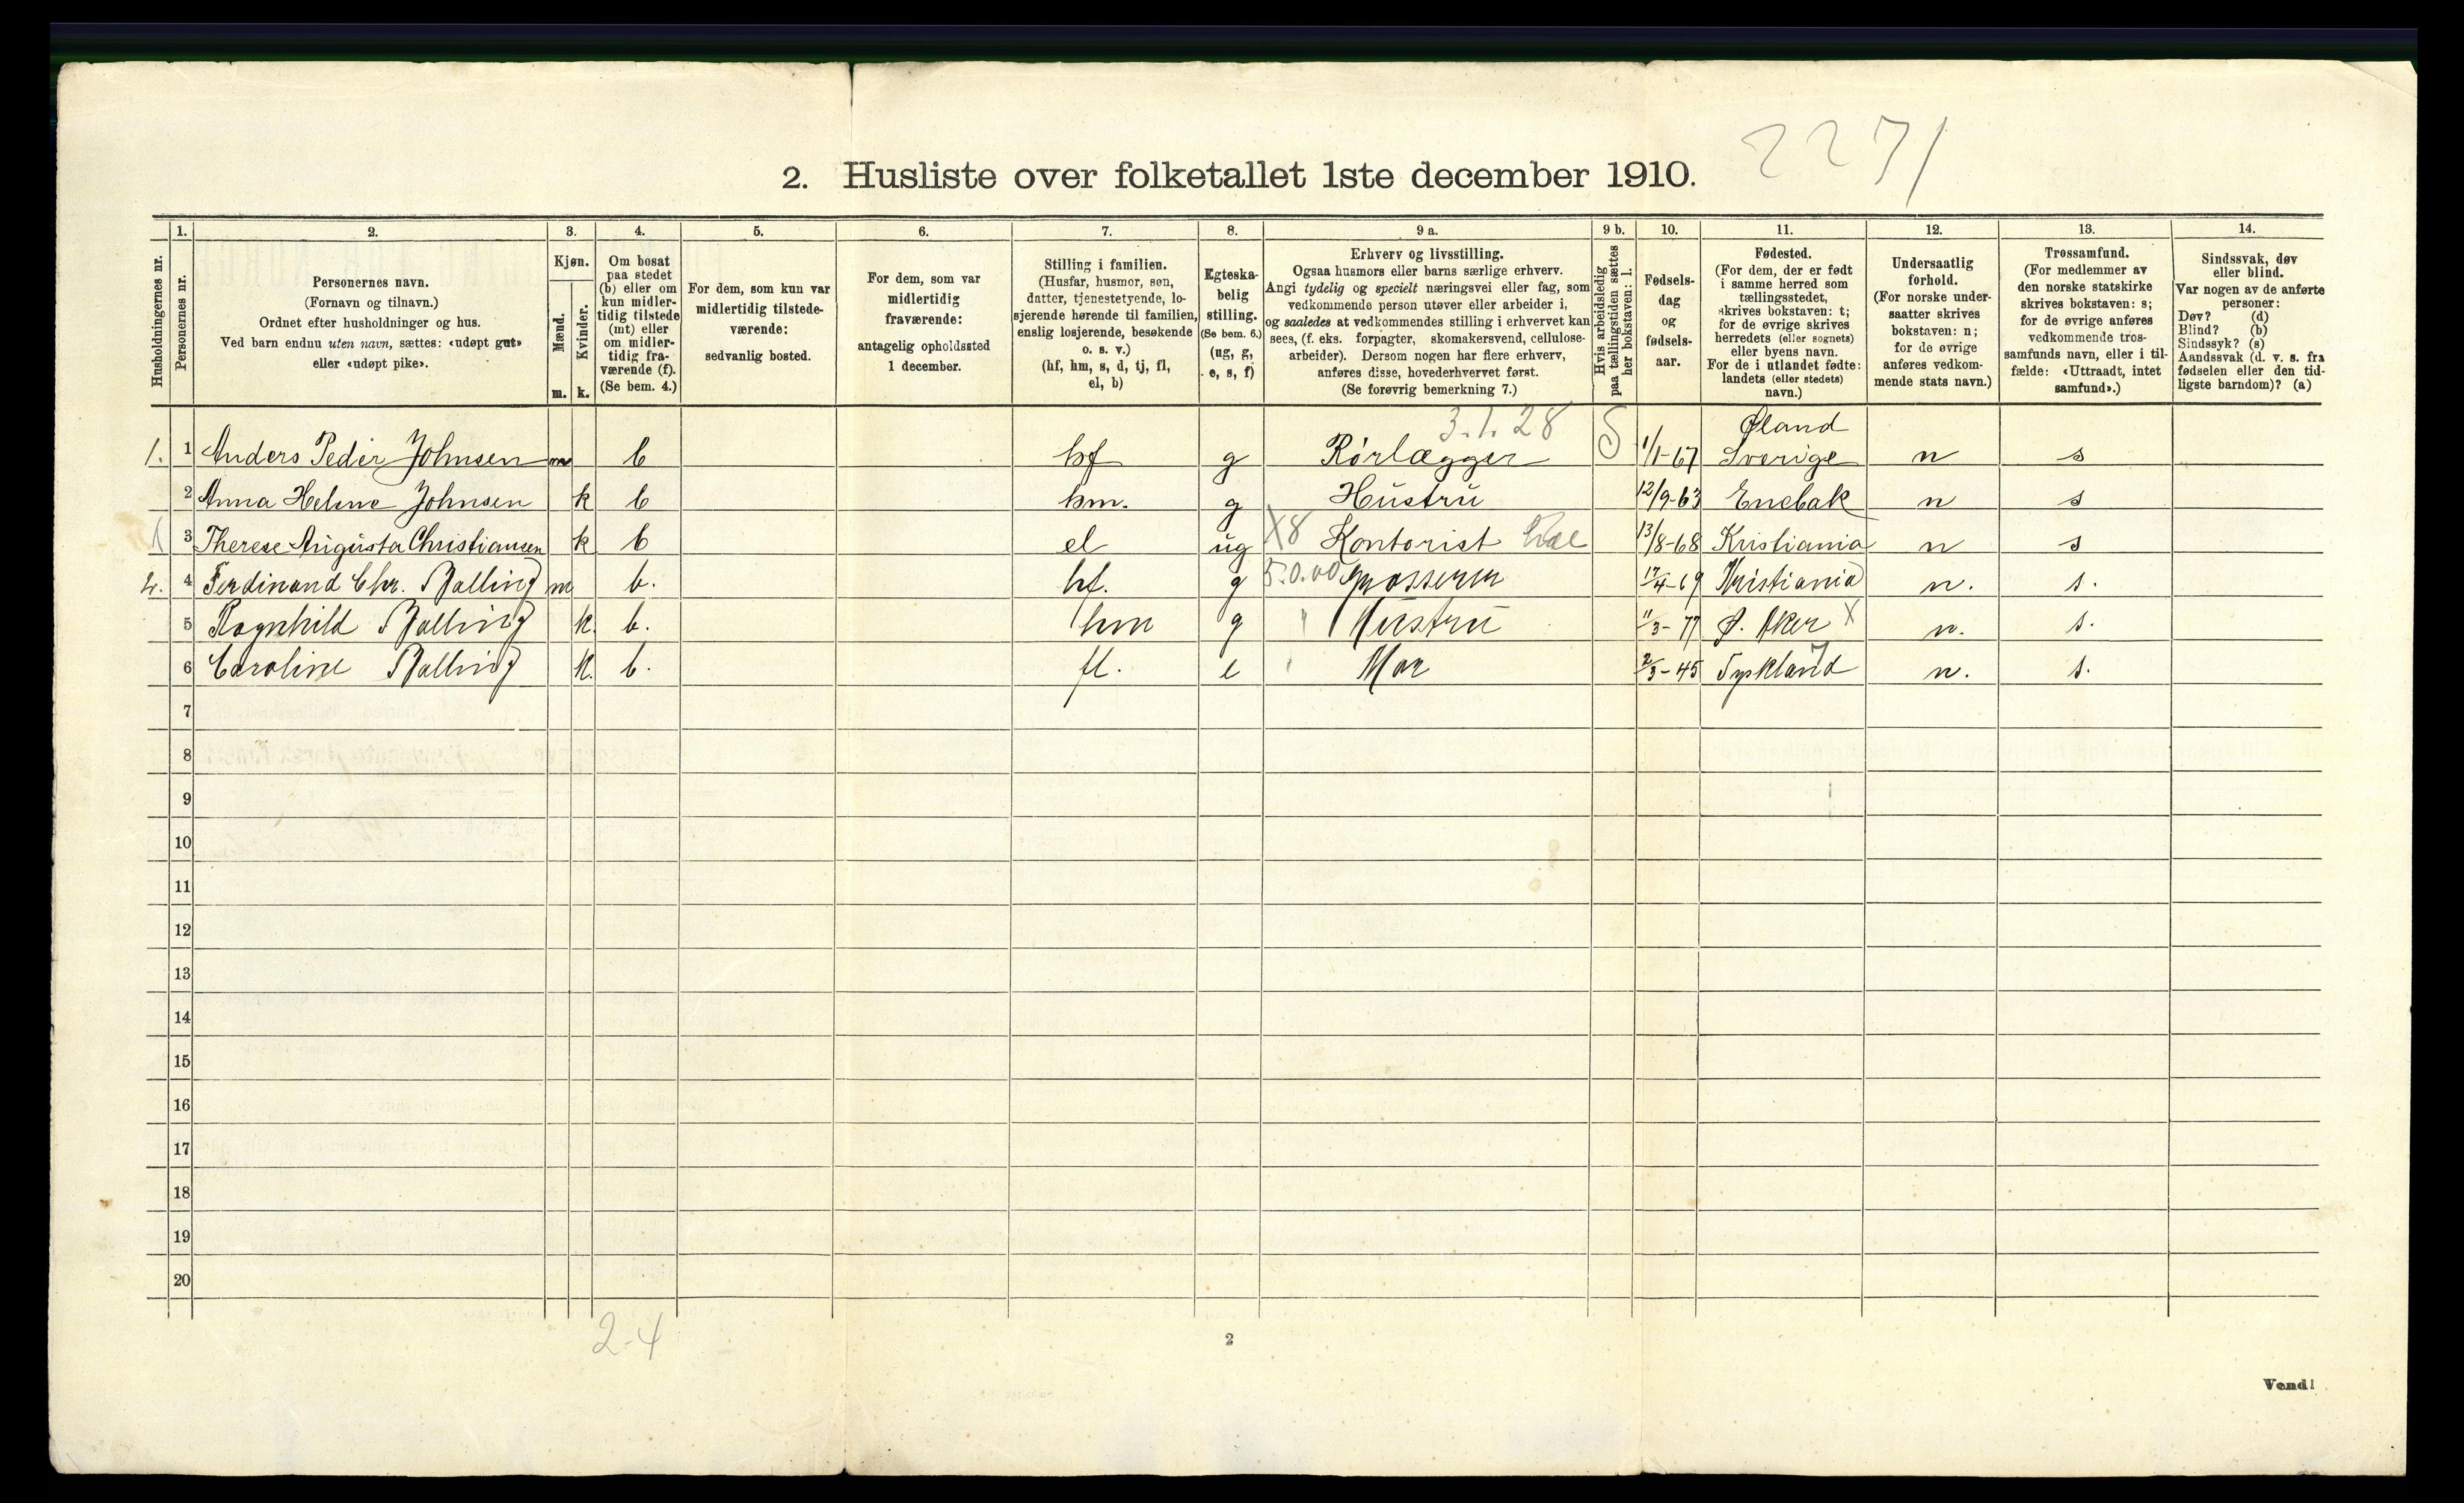 2271
2. Husliste over folketallet 1ste december 1910.
Husholdningernes nr.
1.
Personernes nr.
2.
Personernes navn.
(Fornavn og tilnavn.)
Ordnet efter husholdninger og hus.
Ved barn endnu uten navn, sættes: «udøpt gut»
eller «udøpt pike».
3.
Kjøn.
Mænd.
Kvinder.
m. k.
4.
Om bosat
paa stedet
(b) eller om
kun midler-
tidig tilstede
(mt) eller
om midler-
tidig fra-
værende (f).
(Se bem. 4.)
5.
For dem, som kun var
midlertidig tilstede-
værende:
sedvanlig bosted.
6.
For dem, som var
midlertidig
fraværende:
antagelig opholdssted
1 december.
7.
Stilling i familien.
(Husfar, husmor, søn,
datter, tjenestetyende, lo-
sjerende hørende til familien,
enslig losjerende, besøkende
o. s. v.)
(hf, hm, s, d, tj, fl,
el, b)
8.
Egteska-
belig
stilling.
(Se bem. 6.)
(ug, g,
e, s, f)
9 a.
Erhverv og livsstilling.
Ogsaa husmors eller barns særlige erhverv.
Angi tydelig og specielt næringsvei eller fag, som
vedkommende person utøver eller arbeider i,
og saaledes at vedkommendes stilling i erhvervet kan
sees, (f. eks. forpagter, skomakersvend, cellulose-
arbeider). Dersom nogen har flere erhverv,
anføres disse, hovederhvervet først.
(Se forøvrig bemerkning 7.)
9 b.
Hvis arbeidsledig
paa tællingstiden sættes
her bokstaven: l.
10.
Fødsels-
dag
og
fødsels-
aar.
11.
Fødested.
(For dem, der er født
i samme herred som
tællingsstedet,
skrives bokstaven: t;
for de øvrige skrives
herredets (eller sognets)
eller byens navn.
For de i utlandet fødte:
landets (eller stedets)
navn.)
12.
Undersaatlig
forhold.
(For norske under-
saatter skrives
bokstaven: n;
for de øvrige
anføres vedkom-
mende stats navn.)
13.
Trossamfund.
(For medlemmer av
den norske statskirke
skrives bokstaven: s;
for de øvrige anføres
vedkommende tros-
samfunds navn, eller i til-
fælde: «Uttraadt, intet
samfund».)
14.
Sindssvak, døv
eller blind.
Var nogen av de anførte
personer:
Døv? (d)
Blind? (b)
Sindssyk? (s)
Aandssvak (d. v. s. fra
fødselen eller den tid-
ligste barndom)? (a)
3.1.28 S Øland
1. 1 Anders Peder Johnsen m b hf g Rørlægger 1/1-67 Sverige n s
2 Anna Helene Johnsen k b hm. g Hustru 12/9-63 Enebak n s
1 3 Therese Augusta Christiansen k b el ug X8 Kontorist 13/8-68 Kristiania n s
2. 4 Ferdinand Chr. Balling m b. hf. g 5.0.00 Grosserer 17/4-69 Kristiania n. s.
5 Ragnhild Balling k. b. hm g " Hustru 11/3-77 Ø. Aker X n. s.
6 Caroline Balling k. b. fl. e " Mor 2/3-45 Tyskland n. s.
7
8
9
10
11
12
13
14
15
16
17
18
19
20
2-4
2
Vend!